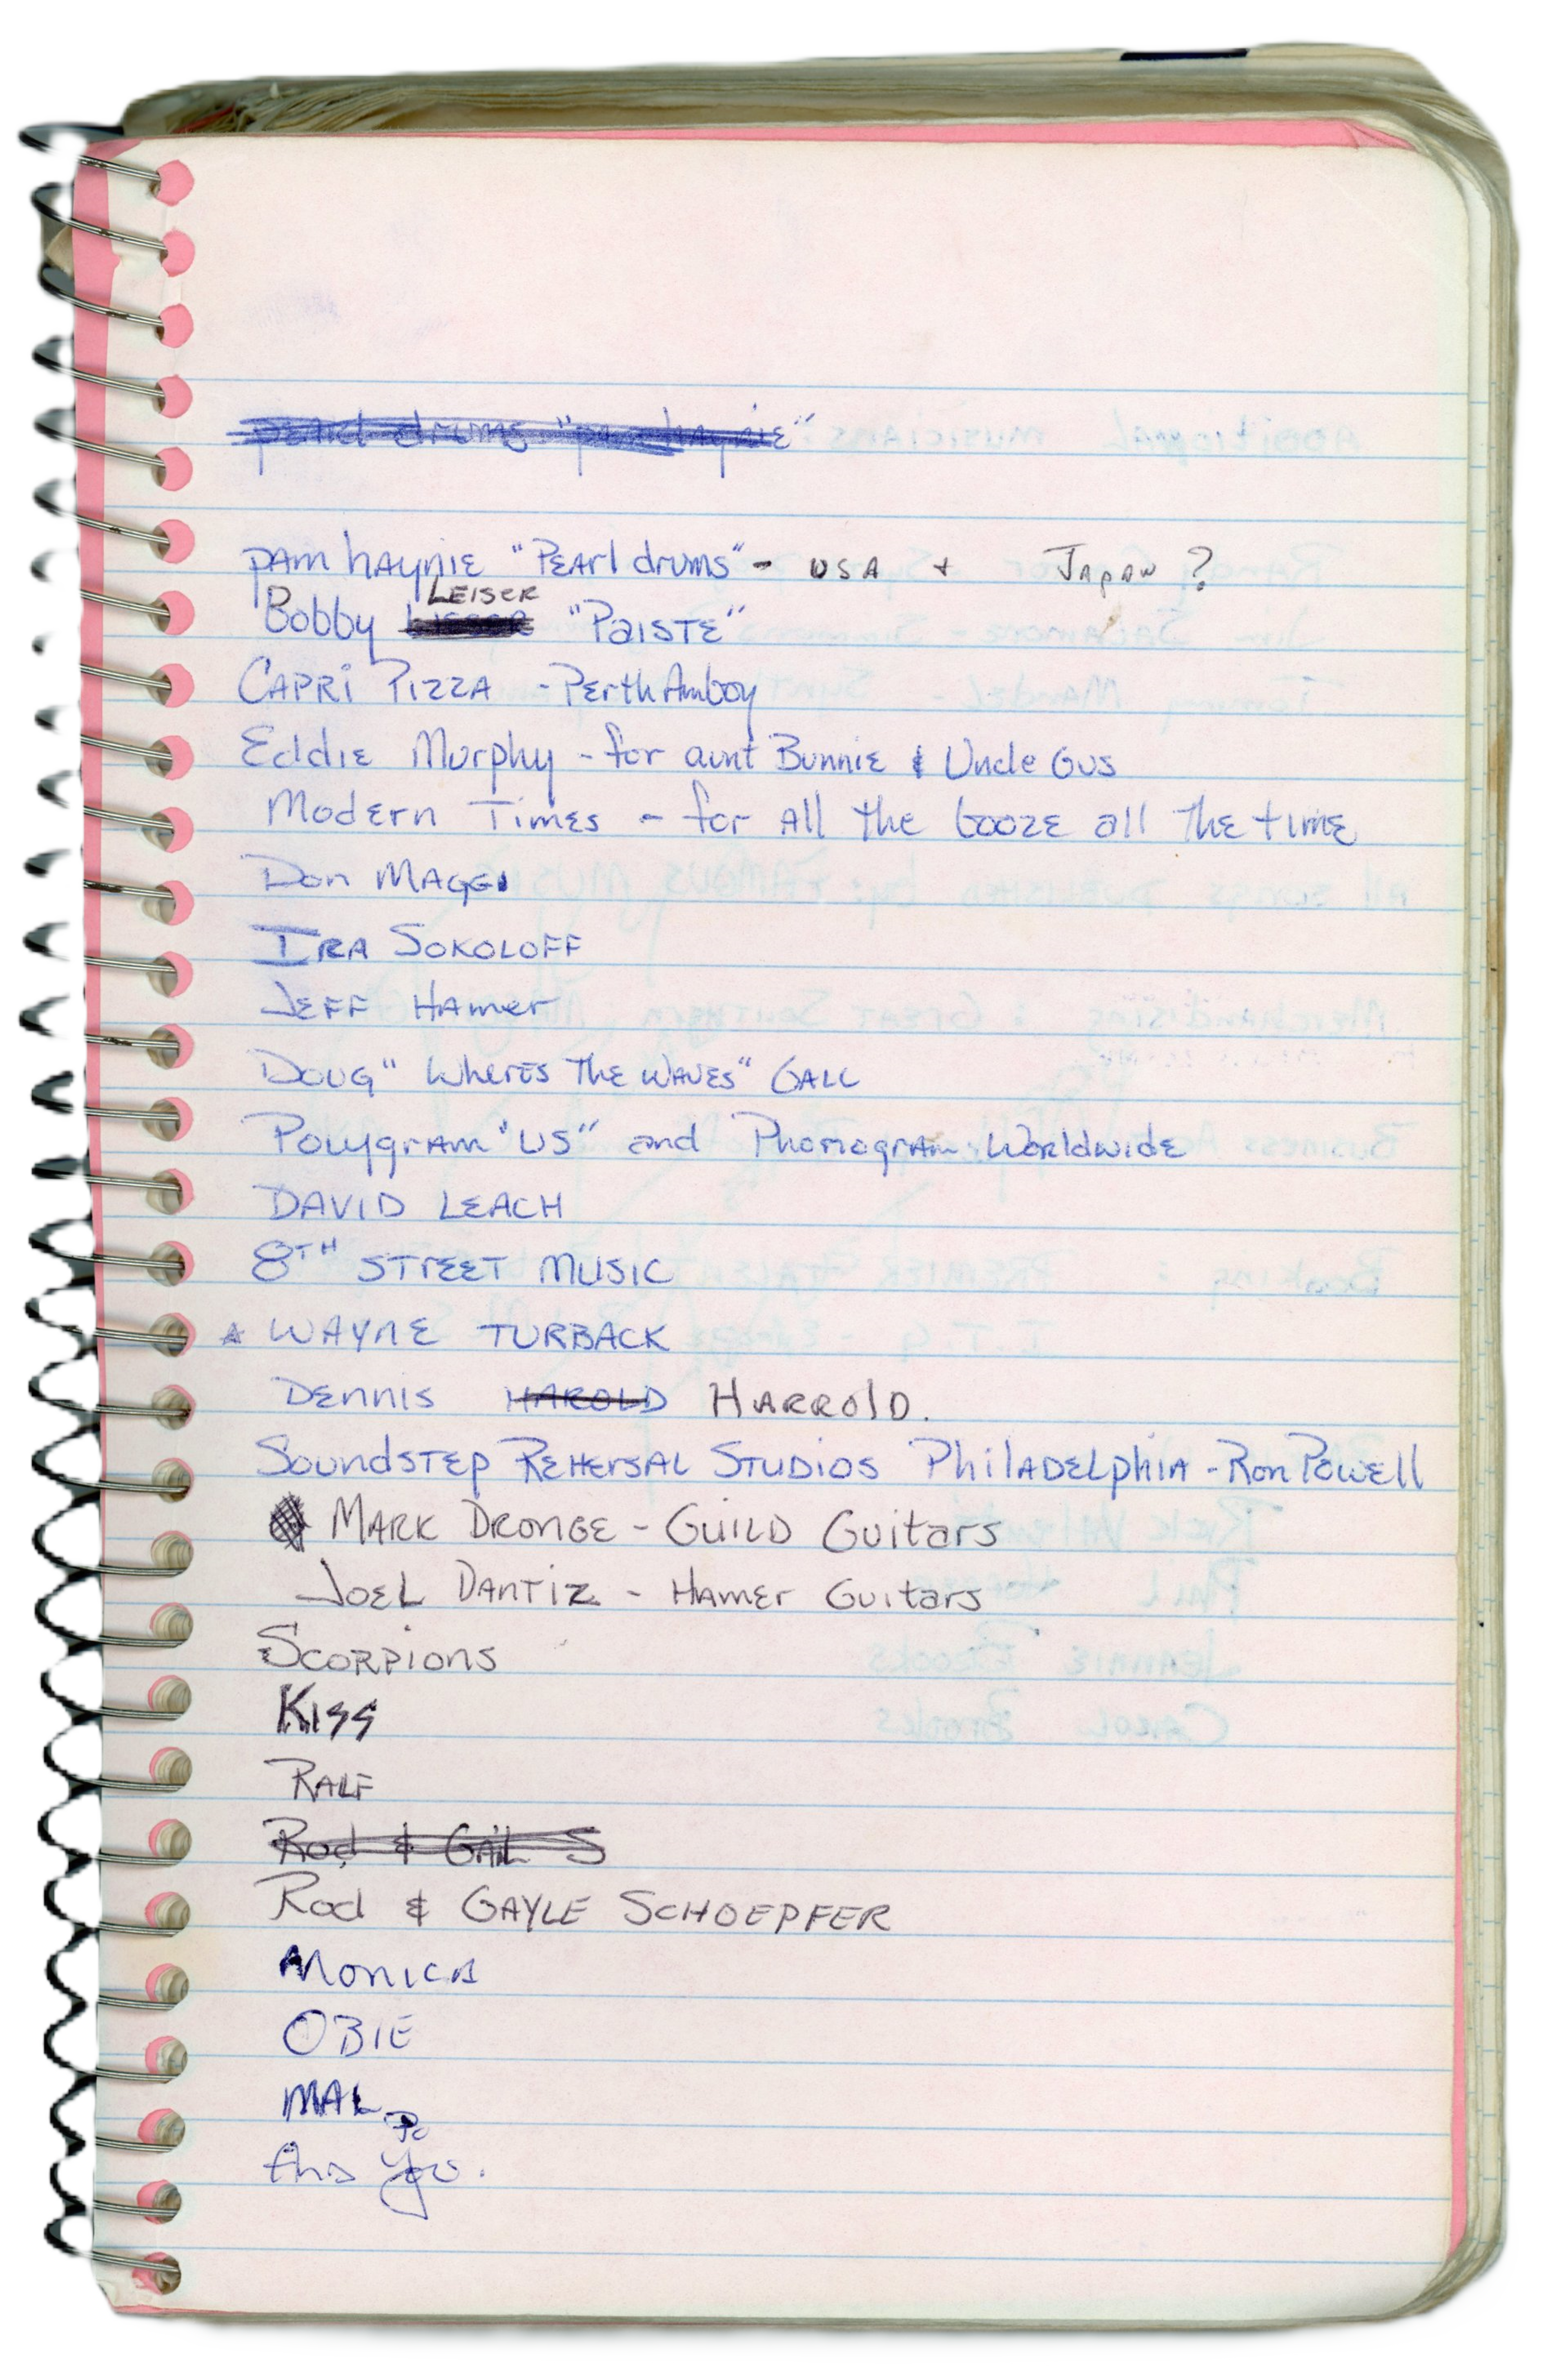 pearl drums "pam haynie"
pam haynie "Pearl drums" - USA + Japan ?
LEISER
Bobby "Paiste"
Capri Pizza - Perth Amboy
Eddie Murphy - for aunt Bunnie & Uncle Gus
Modern Times - for all the booze all the time
Don Maggi
Ira Sokoloff
Jeff Hamer
Doug "Wheres the waves" Gall
Polygram "US" and Phonogram Worldwide
DAVID LEACH
8TH STREET MUSIC
WAYNE TURBACK
Dennis HAROLD HARROLD.
Soundstep Rehersal Studios Philadelphia - Ron Powell
Mark Dronge - Guild Guitars
Joel Dantiz - Hamer Guitars
Scorpions
Kiss
Ralf
Rod & Gail S
Rod & GAYLE SCHOEPFER
Monica
OBIE
MAL
Po
And You.